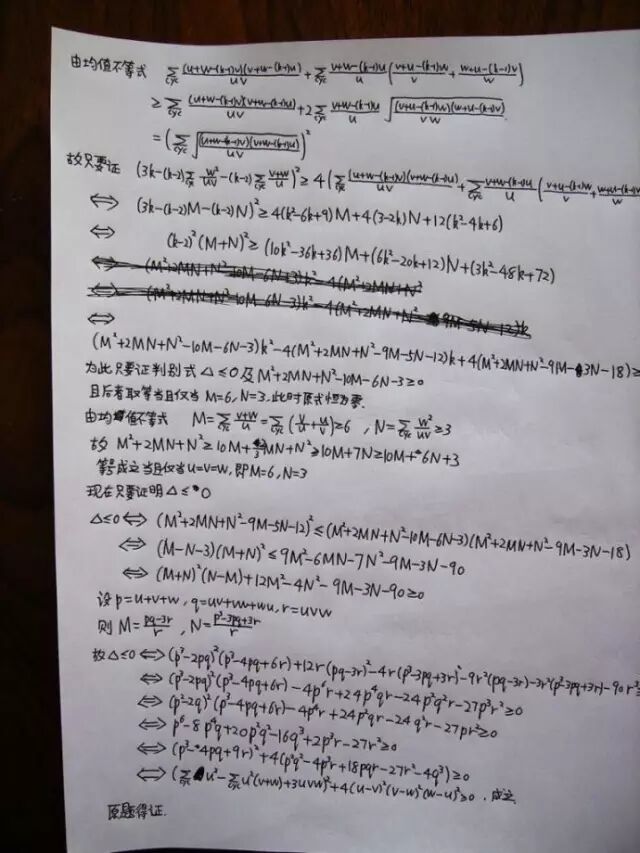 由均值不等式 ∑cyc (u+w-(k-1)v)(v+w-(k-1)u)/uv + ∑cyc v+w-(k-1)u/u (v+u-(k-1)w/v + w+u-(k-1)v/w)
≥ ∑cyc (u+w-(k-1)v)(v+w-(k-1)u)/uv + 2∑cyc v+w-(k-1)u/u √((v+u-(k-1)w)(w+u-(k-1)v)/vw)
= (∑cyc √((u+w-(k-1)v)(v+w-(k-1)u)/uv))²
故只要证 (3k-(k-2)∑cyc w²/uv-(k-2)∑cyc v+w/u)² ≥ 4(∑cyc (u+w-(k-1)v)(v+w-(k-1)u)/uv + ∑cyc v+w-(k-1)u/u (v+u-(k-1)w/v + w+u-(k-1)v/w
⇔ (3k-(k-2)M-(k-2)N)² ≥ 4(k²-6k+9)M+4(3-2k)N+12(k²-4k+6)
⇔ (k-2)²(M+N)² ≥ (10k²-36k+36)M+(6k²-20k+12)N+(3k²-48k+72)
⇔ (M²+2MN+N²-10M-6N-3)k²-4(M²+2MN+N²
⇔ (M²+2MN+N²-10M-6N-3)k²-4(M²+2MN+N²-9M-5N-12)k
⇔
(M²+2MN+N²-10M-6N-3)k²-4(M²+2MN+N²-9M-5N-12)k+4(M²+2MN+N²-9M-3N-18)≥
为此只要证判别式 Δ≤0 及 M²+2MN+N²-10M-6N-3≥0
且后者取等当且仅当 M=6,N=3,此时原式恒为零.
由均值不等式 M=∑cyc v+w/u=∑cyc(v/u+u/v)≥6 , N=∑cyc w²/uv≥3
故 M²+2MN+N²≥10M+7/3MN+N²≥10M+7N≥10M+6N+3
等号成立当且仅当u=v=w,即M=6,N=3
现在只要证明Δ≤0
Δ≤0 ⇔ (M²+2MN+N²-9M-5N-12)²≤(M²+2MN+N²-10M-6N-3)(M²+2MN+N²-9M-3N-18)
⇔ (M-N-3)(M+N)²≤9M²-6MN-7N²-9M-3N-90
⇔ (M+N)²(N-M)+12M²-4N²-9M-3N-90≥0
设 p=u+v+w , q=uv+vw+wu, r=uvw
则 M=pq-3r/r , N=p³-3pq+3r/r
故Δ≤0 ⇔ (p³-2pq)²(p³-4pq+6r)+12r(pq-3r)²-4r(p³-3pq+3r)²-9r²(pq-3r)-3r²(p³-3pq+3r)-90r³≥
⇔ (p³-2pq)²(p³-4pq+6r)-4p⁶r+24p⁴qr-24p²q²r-27p³r²≥0
⇔ (p²-2q)²(p³-4pq+6r)-4p⁴r+24p²qr-24q²r-27pr²≥0
⇔ p⁶-8p⁴q+20p²q²-16q³+2p³r-27r²≥0
⇔ (p³-4pq+9r)²+4(p²q²-4p³r+18pqr-27r²-4q³)≥0
⇔ (∑cyc u³-∑cyc u²(v+w)+3uvw)²+4(u-v)²(v-w)²(w-u)²≥0 , 成立
原题得证.